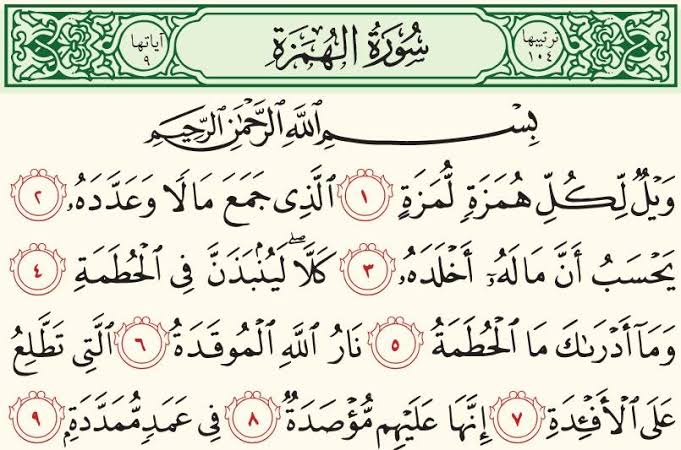 ترتيبها ١٠٤
سُورَةُ الهُمَزَةِ
آياتها ٩
بِسْمِ ٱللَّهِ ٱلرَّحْمَٰنِ ٱلرَّحِيمِ
وَيْلٌ لِّكُلِّ هُمَزَةٍ لُّمَزَةٍ ١ ٱلَّذِى جَمَعَ مَالًا وَعَدَّدَهُۥ ٢
يَحْسَبُ أَنَّ مَالَهُۥٓ أَخْلَدَهُۥ ٣ كَلَّا ۖ لَيُنۢبَذَنَّ فِى ٱلْحُطَمَةِ ٤
وَمَآ أَدْرَىٰكَ مَا ٱلْحُطَمَةُ ٥ نَارُ ٱللَّهِ ٱلْمُوقَدَةُ ٦ ٱلَّتِى تَطَّلِعُ
عَلَى ٱلْأَفْـِٔدَةِ ٧ إِنَّهَا عَلَيْهِم مُّؤْصَدَةٌ ٨ فِى عَمَدٍ مُّمَدَّدَةٍۭ ٩